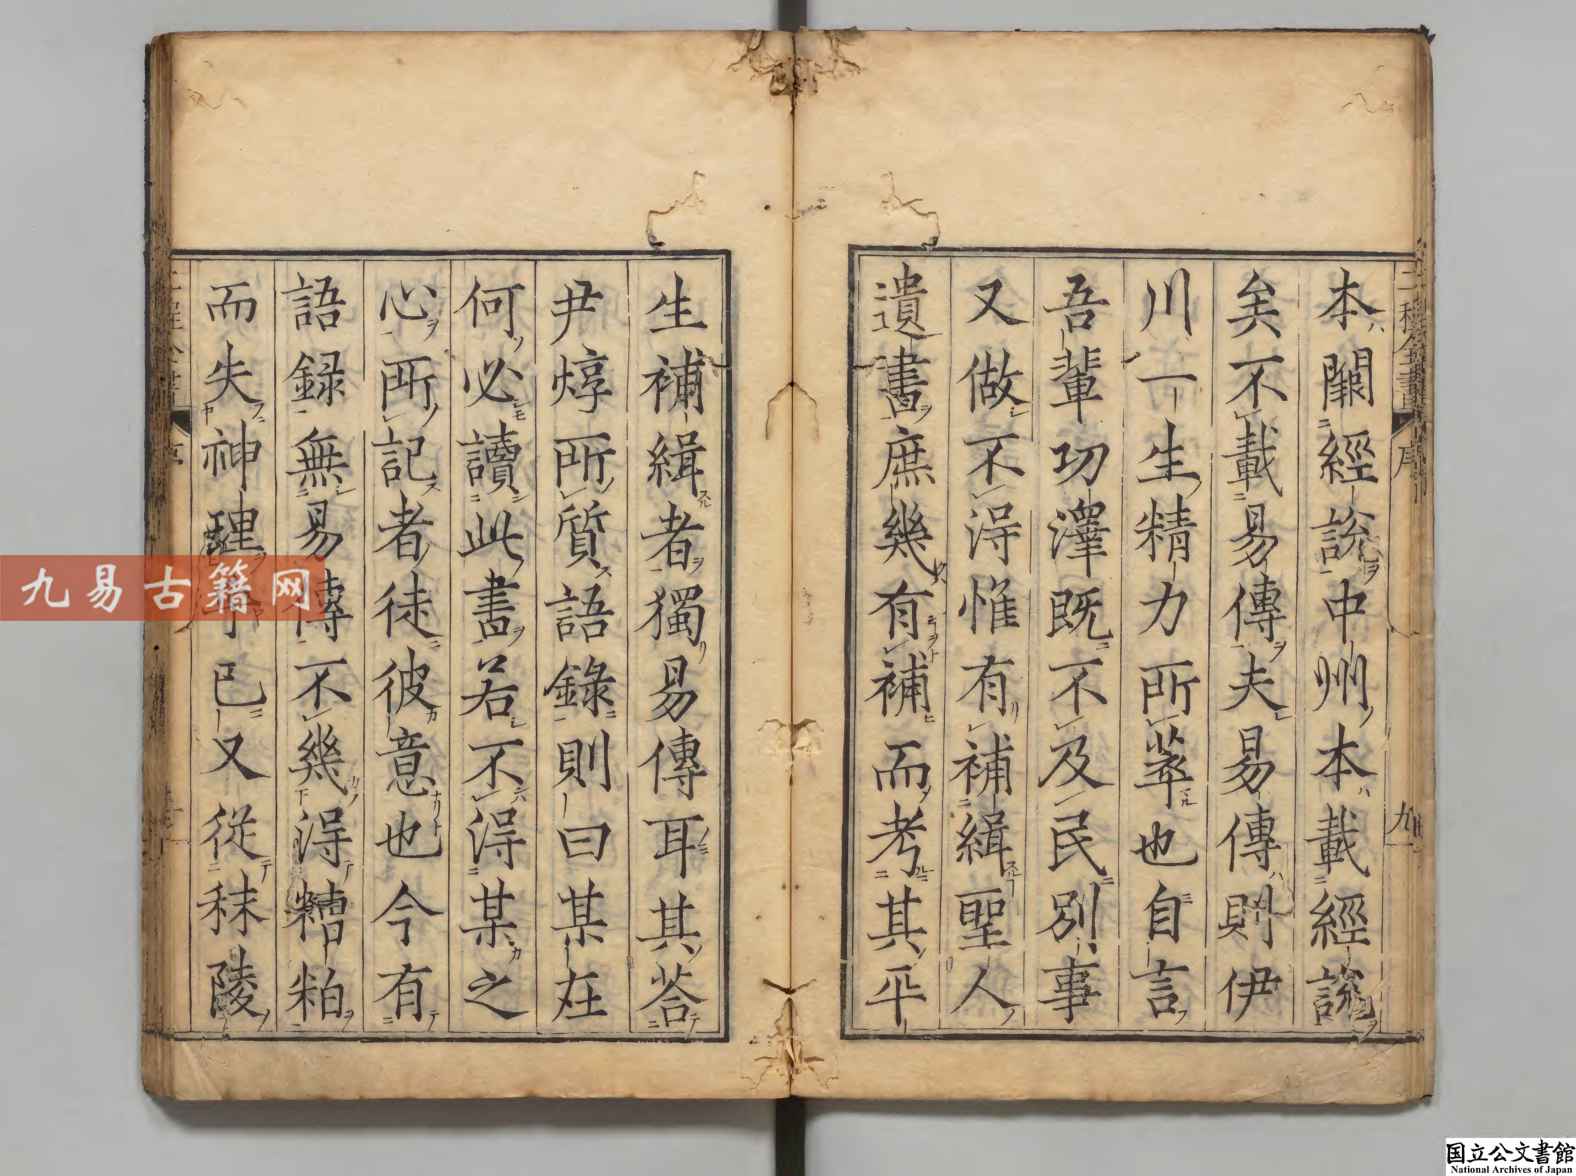 本闕經說中州本載經說
矣不載易傳夫易傳則伊
川一生精力所萃也自言
吾輩功澤既不及民別事
又做不得惟有補緝聖人
遺書庶幾有補而考其平
生補緝者獨易傳耳其荅
尹焞所質語錄則曰某在
何必讀此書若不得某之
心所記者徒彼意也今有
語録無易傳不幾得糟粕
而失神理 已又從秣陵
二程全書 序 九
九易古籍网
国立公文書館
National Archives of Japan